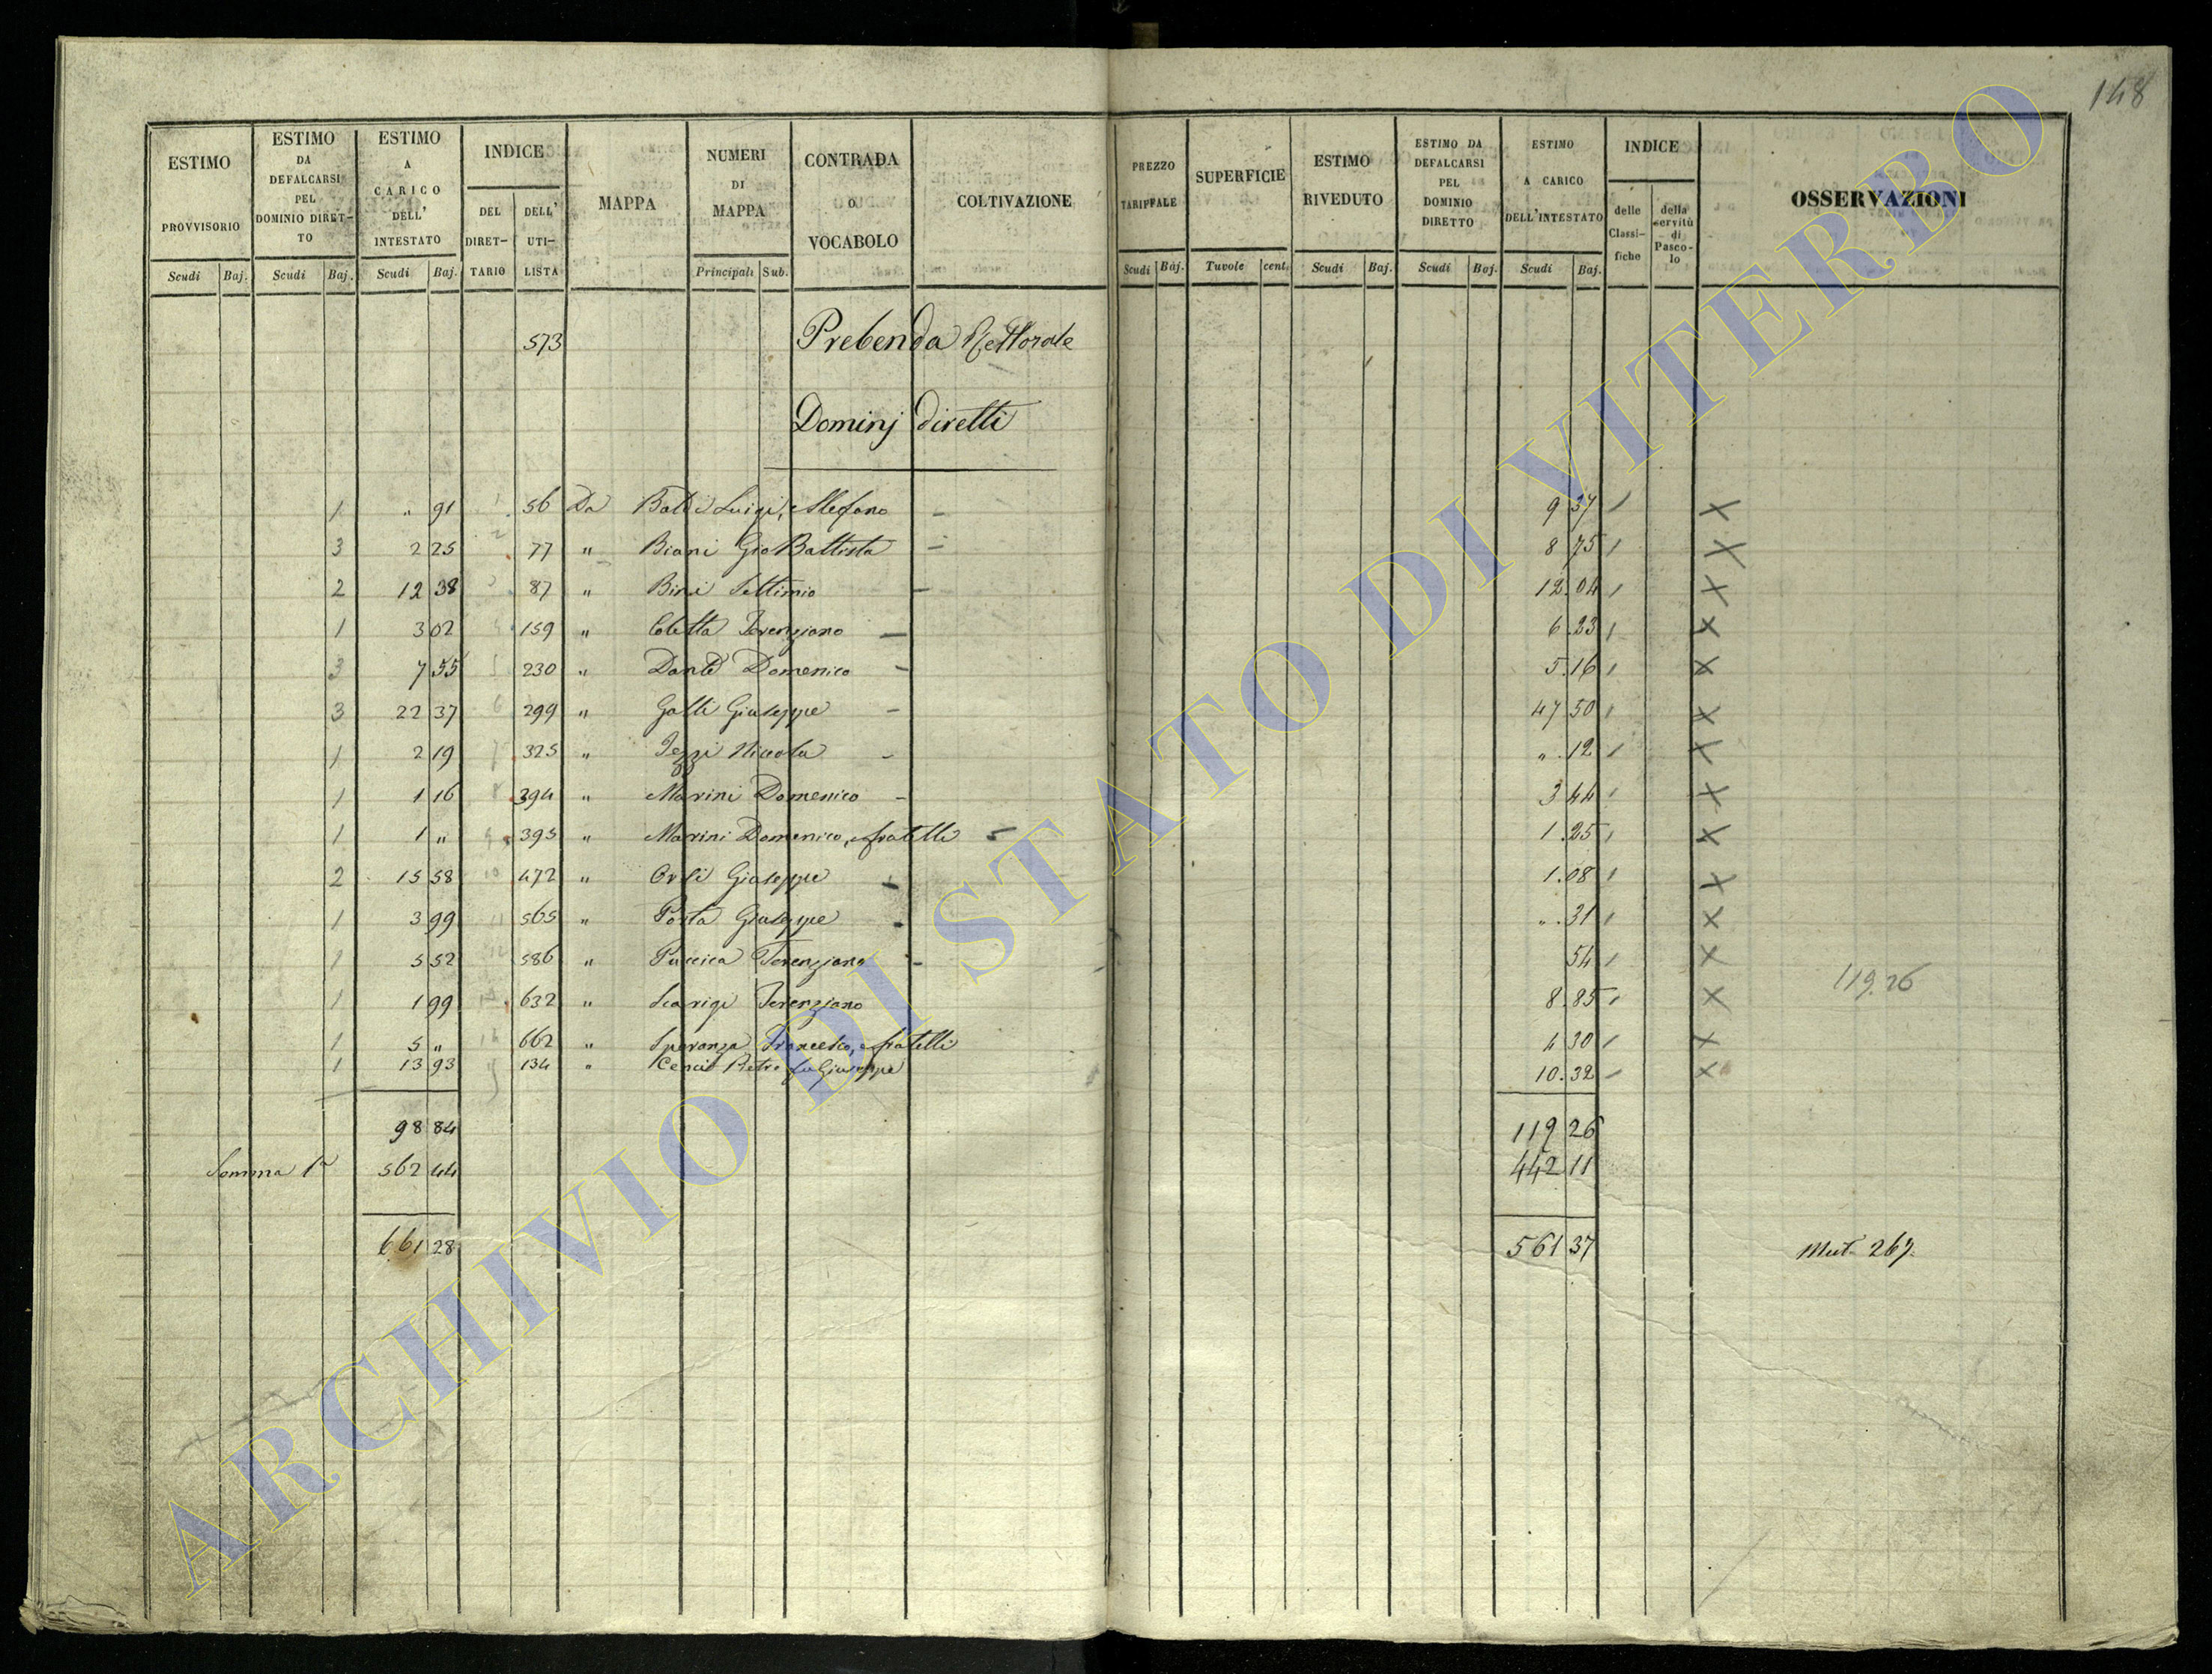 148
ESTIMO PROVVISORIO
ESTIMO DA DEFALCARSI PEL DOMINIO DIRET- TO
ESTIMO A CARICO DELL' INTESTATO
INDICE
DEL DIRET- TARIO
DELL' UTI- LISTA
MAPPA
NUMERI DI MAPPA
CONTRADA O VOCABOLO
COLTIVAZIONE
PREZZO TARIFFALE
SUPERFICIE
ESTIMO RIVEDUTO
ESTIMO DA DEFALCARSI PEL DOMINIO DIRETTO
ESTIMO A CARICO DELL'INTESTATO
INDICE
delle Classi- fiche
della servitù di Pasco- lo
OSSERVAZIONI
Scudi Baj. Scudi Baj. Scudi Baj. Principali Sub. Scudi Baj. Tavole cent. Scudi Baj. Scudi Baj. Scudi Baj.
573 Prebenda Rettorale
Dominj diretti
1 " 91 1 56 Da Baldi Luigi, e Stefano — 9 37 X
3 2 25 2 77 " Biani Gio Battista — 8 75 X
2 12 38 3 87 " Bini Settimio — 12.04 X
1 3 02 4 159 " Coletta Terenziano — 6.23 X
3 7 55 5 230 " Dante Domenico — 5.16 X
3 22 37 6 299 " Galli Giuseppe — 47 50 X
1 2 19 7 325 " Iezzi Niccola - ".12 X
1 1 16 8 394 " Marini Domenico - 3 44 X
1 1 " 9 395 " Marini Domenico, e fratelli 1.25 X
2 15 58 10 472 " Orli Giuseppe - 1.08 X
1 3 99 11 565 " Porta Giuseppe - ".31 X
1 5 52 12 586 " Puccica Terenziano - 54 X
1 1 99 13 632 " Scarigi Terenziano 8.85 X 119.26
1 5 " 14 662 " Speranza Francesco, e fratelli 4 30 X
1 13 93 15 134 " Cenci Pietro fu Giuseppe 10.32 X
98 84 119 26
Somma 1a 562 44 442 11
661 28 561 37 Mut. 267.
ARCHIVIO DI STATO DI VITERBO